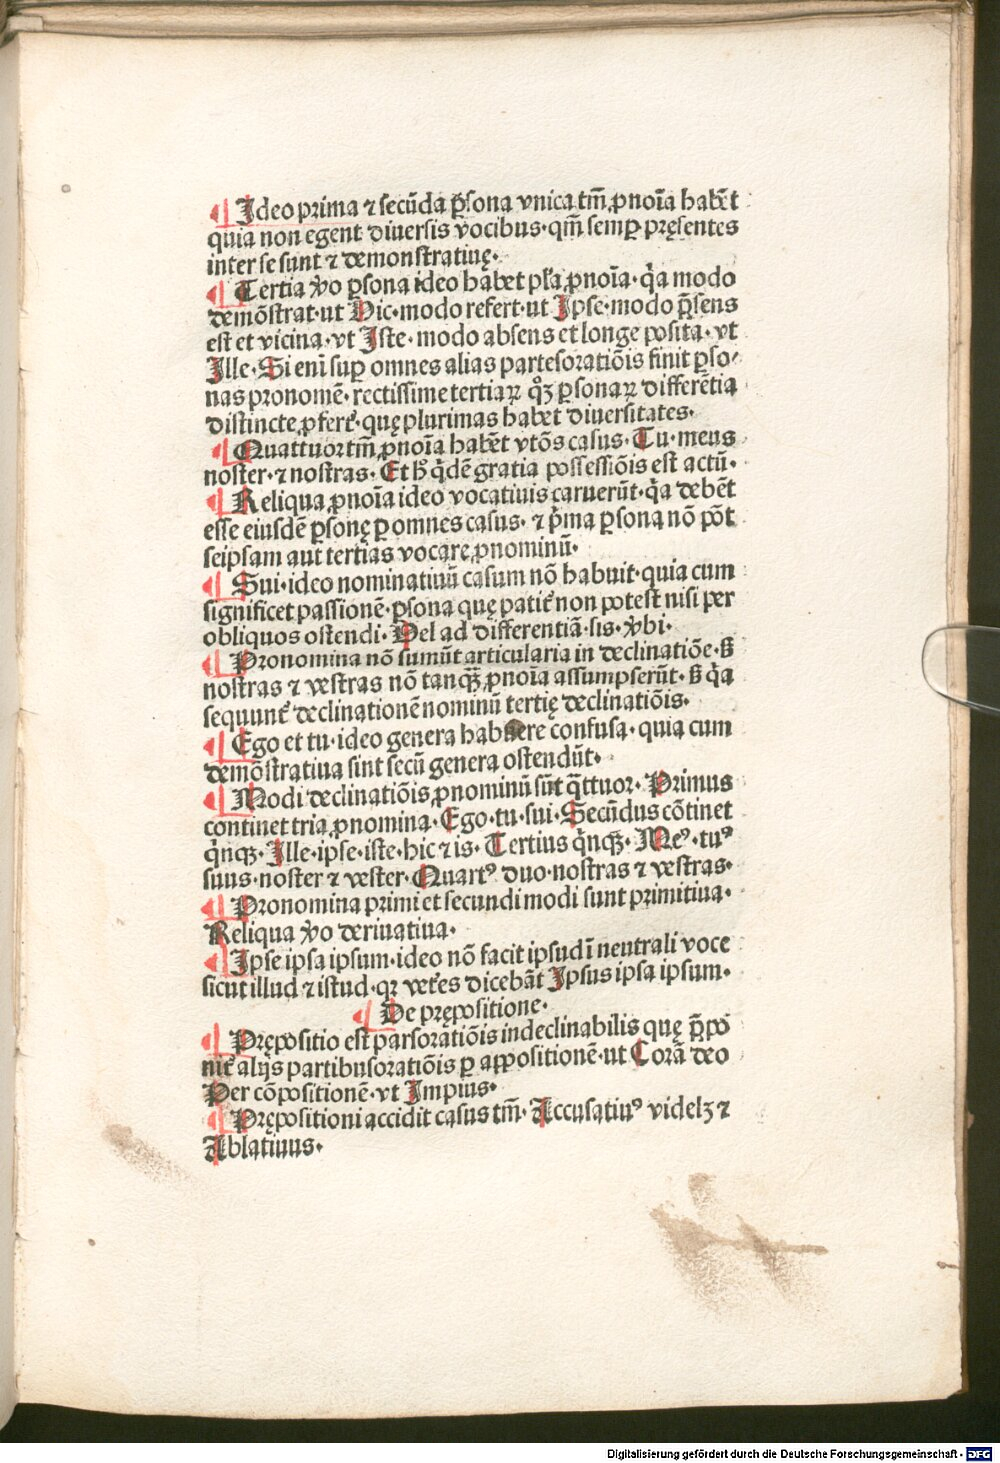 ¶ Ideo prima ⁊ secūda ꝑsona vnica tm̄ ꝓnoīa habēt
quia non egent diuersis vocibus· qm̄ semꝑ pręsentes
inter se sunt ⁊ demonstratiuę·
¶ Tertia ṽo ꝑsona ideo habet pl'a ꝓnoīa· q̇a modo
demōstrat· ut Hic· modo refert· ut Ipse· modo p̄sens
est et vicina· vt Iste· modo absens et longe posita· vt
Ille· Si eni suꝑ omnes alias partesoratiōis finit ꝑso/
nas pronomē· rectissime tertiaꝝ qͦꝫ ꝑsonaꝝ differētia
distincte ꝓfert᷑· quę plurimas habet diuersitates·
¶ Quattuor tm̄ ꝓnoīa habēt vtōs casus· Tu· meus
noster· ⁊ nostras· Et hͦ q̇dē gratia possessiōis est actū·
¶ Reliqua ꝓnoīa ideo vocatiuis caruerūt· q̇a debēt
esse eiusdē ꝑsonę ꝑ omnes casus· ⁊ ṗma ꝑsona nō pōt
seipsam aut tertias vocare ꝓnominū·
¶ Sui· ideo nominatiuū casum nō habuit· quia cum
significet passionē· ꝑsona quę patit᷑ non potest nisi per
obliquos ostendi· Vel ad differentiā· sis· ṽbi·
¶ Pronomina nō sumūt articularia in declinatiōe· ß
nostras ⁊ vestras nō tanqꝫ̄ ꝓnoīa assumpserūt· ß q̇a
sequunt᷑ declinationē nominū tertię declinatiōis·
¶ Ego et tu· ideo genera habuere confusa· quia cum
demōstratiua sint secū genera ostendūt·
¶ Modi declinatiōis ꝓnominū sūt q̄ttuor· Primus
continet tria ꝓnomina· Ego· tu· sui· Secūdus cōtinet
q̇nqꝫ· Ille· ipse· iste· hic ⁊ is· Tertius q̇nqꝫ· Meꝰ· tuꝰ
suus· noster ⁊ vester· Quartꝰ duo· nostras ⁊ vestras·
¶ Pronomina primi et secundi modi sunt primitiua·
Reliqua ṽo deriuatiua·
¶ Ipse ipsa ipsum· ideo nō facit ipsud ī neutrali voce
sicut illud ⁊ istud· qꝛ vet᷑es dicebāt Ipsus ipsa ipsum·
¶ De prępositione·
¶ Prępositio est parsoratiōis indeclinabilis quę p̄po
nit᷑ alijs partibusoratiōis ꝑ appositionē· ut Corā deo
Per cōpositionē· vt Impius·
¶ Prępositioni accidit casus tm̄· Accusatiuꝰ videlꝫ ⁊
Ablatiuus·
Digitalisierung gefördert durch die Deutsche Forschungsgemeinschaft - DFG